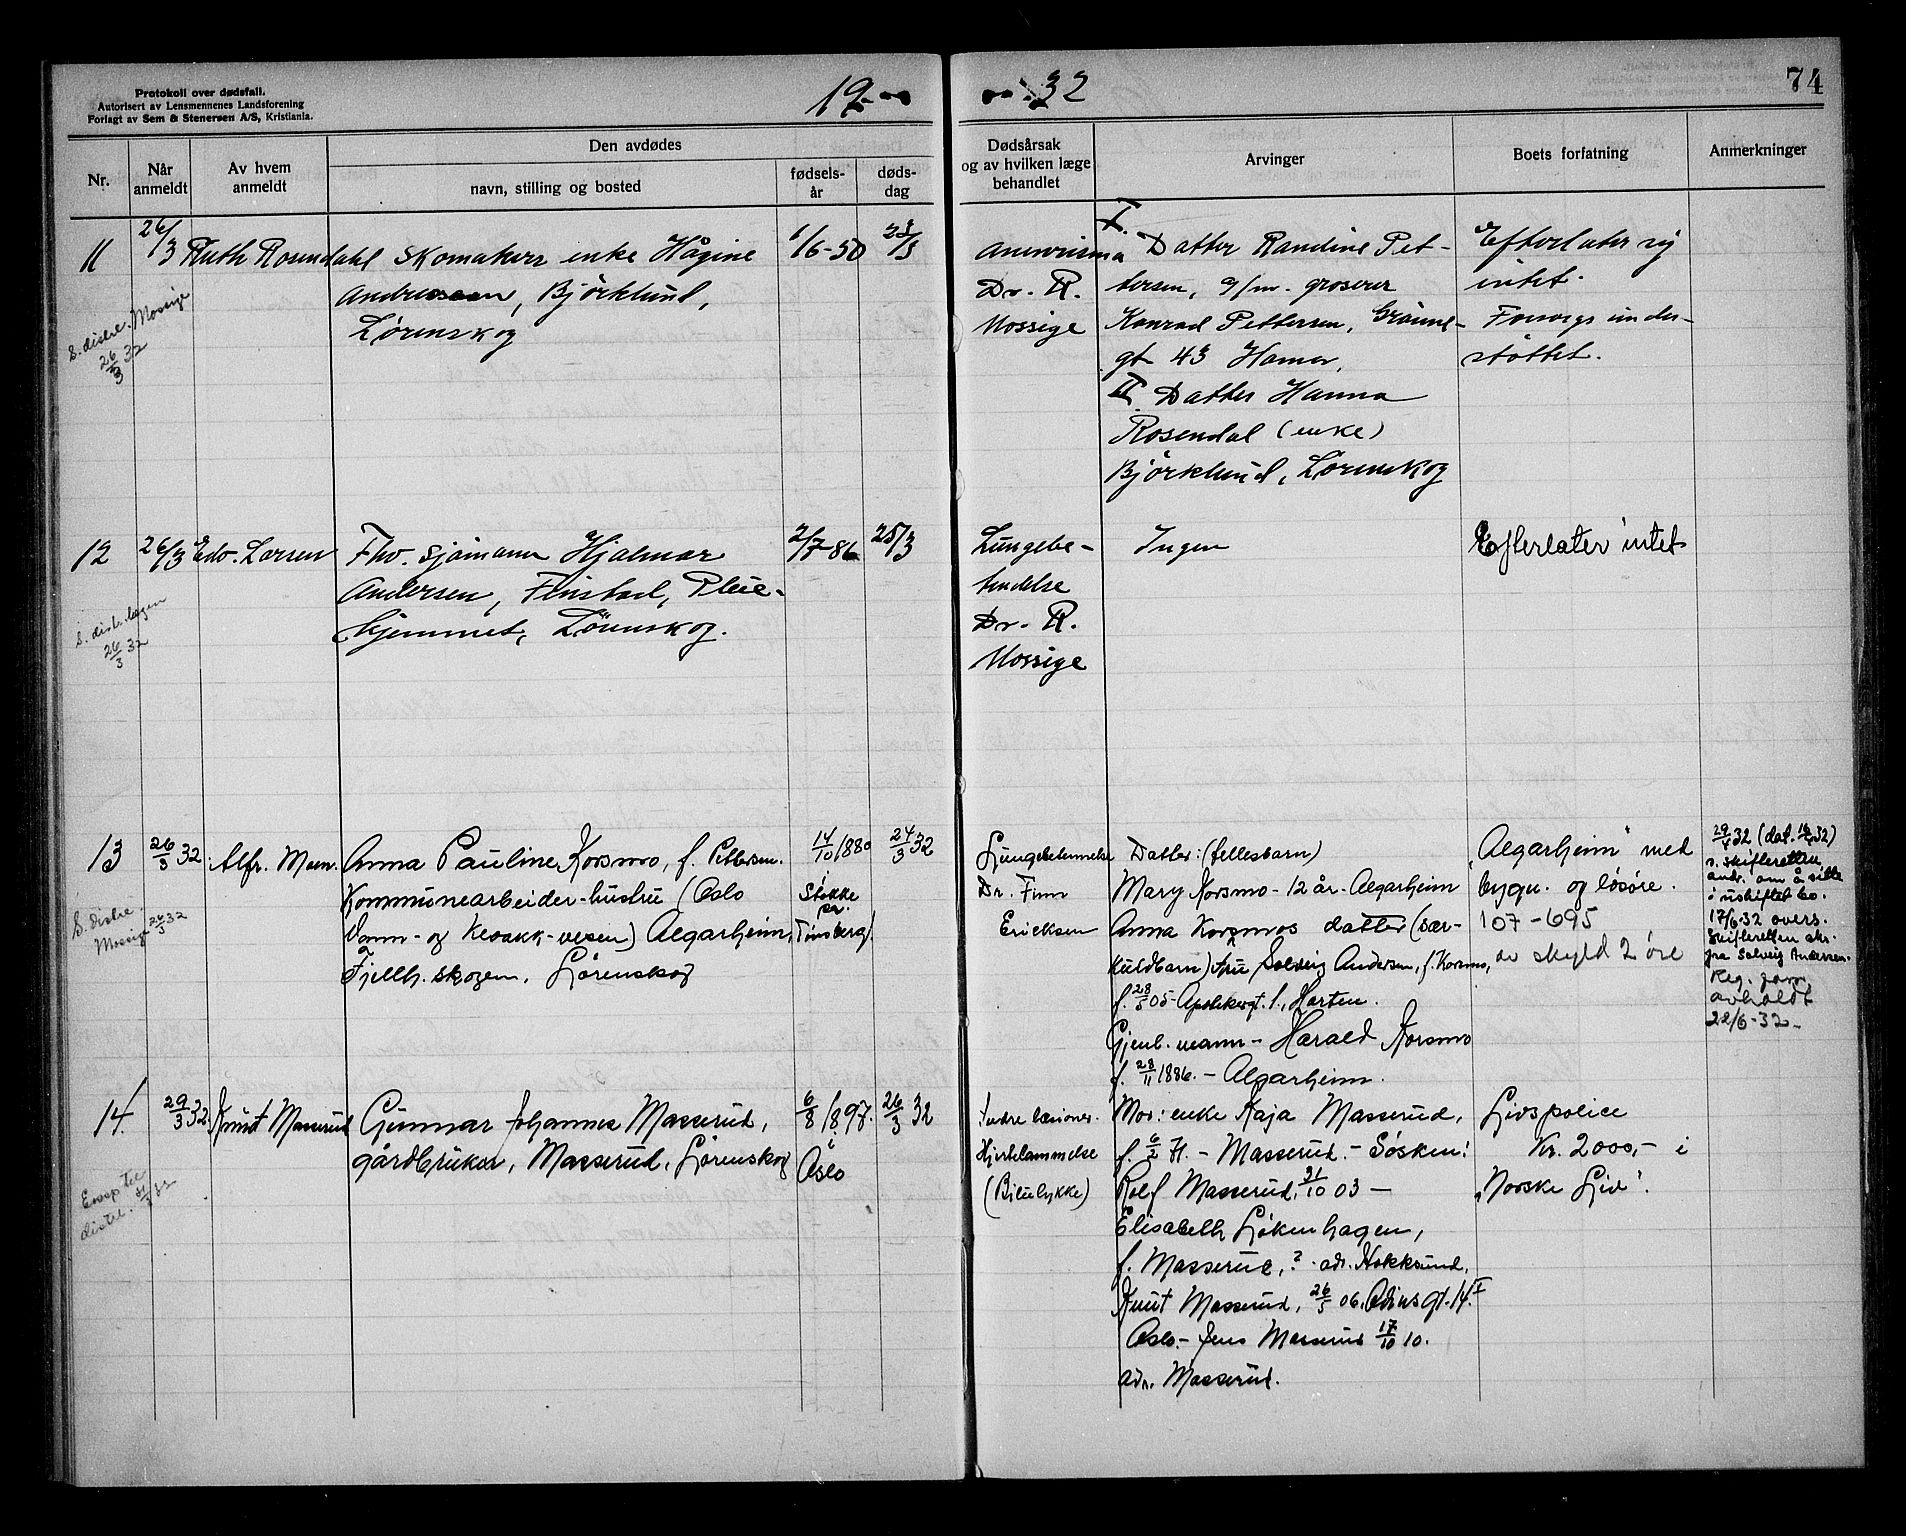 Protokoll over dødsfall.
Autorisert av Lensmennenes Landsforening
Forlagt av Sem & Stenersen A/S, Kristiania.
19 32
74
Nr.
Når anmeldt
Av hvem anmeldt
Den avdødes
navn, stilling og bosted
fødselsår
dødsdag
Dødsårsak og av hvilken læge behandlet
Arvinger
Boets forfatning
Anmerkninger
11
26/3
Ruth Rosendahl
Skomakers enke Hågine
Andreassen, Björklund,
Lørenskog
1/6-50
23/3
Aneurisma
Dr. R.
Mossige
I. Datter Randine Pet-
tersen, g/m. groserer
Konrad Pettersen, Grönne-
gt 43 Hamar,
II Datter Hanna
Rosendal (enke)
Björklund, Lørenskog
Efterlater sig
intet.
Forsorgsunder-
støttet.
S. distr. Mossige
26/3 32
12
26/3
Edv. Larsen
Fhv. sjömann Hjalmar
Andersen, Finstad, Pleie-
hjemmet, Lörenskog.
2/7-86
25/3
Lungebe-
tendelse
Dr. R.
Mossige
Ingen
Efterlater intet
S. distr.lægen
26/3 32
13
26/3 32
Alfr. Moen.
Anna Pauline Korsmo, f. Pettersen.
Kommunearbeider-hustru (Oslo
Vann- og Kloakk-vesen) Algarheim,
Fjellh. skogen, Lørenskog
14/10 1880
Stokke
pr.
Tønsberg.
24/3 32
Lungebetennelse
Dr. Finn
Ericksen
Datter: (fellesbarn)
Mary Korsmo - 12 år - Algarheim
Anna Korsmos datter (sær-
kuldbarn) fru Solveig Andersen, f. Korsmo,
f. 28/5 05 - Apotekergt. 1, Horten.
Gjenl. mann - Harald Korsmo
f. 28/11 1886. - Algarheim.
"Algarheim" med
bygn. og løsøre.
107-695
av skyld 2 øre
29/4 32 (dat. 16/4 32)
v. skifteretten
andr. om å sitte
i uskiftet bo.
17/6-32 overs.
Skifteretten skr.
fra Solveig Andersen.
Reg. forr.
avholdt
22/6-32-
S. distr.
Mossige 26/3 32
14.
29/3 32.
Knut Masserud
Gunnar Johannes Masserud,
gårdbruker, Masserud, Lørenskog
6/8 1897.
i
Oslo
26/3 32
Indre læsioner.
Hjertelammelse
(Bilulykke)
Mor: enke Kaja Masserud,
f. 6/2 71. - Masserud. - Søsken:
Rolf Masserud, 31/10 03 -
Elisabeth Løkenhagen,
f. Masserud, ? - adr. Hokksund,
Knut Masserud, 26/5 06, Odinsgt. 14 I
Oslo. - Jens Masserud 17/10 10.
adr. Masserud.
Livspolice
Kr. 2000,- i
"Norske Liv".
distr. 31/3 32